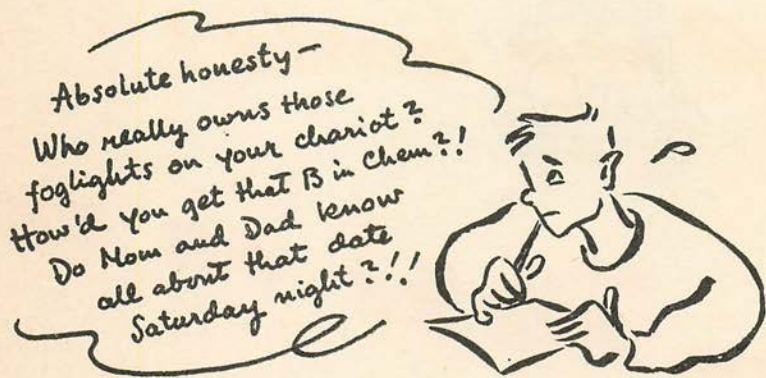 Absolute honesty—
Who really owns those
foglights on your chariot?
How'd you get that B in Chem?!
Do Mom and Dad know
all about that date
Saturday night?!!